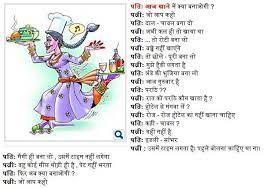 पति: आज खाने में क्या बनाओगी ?
पत्नी: जो आप कहो
पति: दाल - चावल बना लो
पत्नी: अभी कल ही तो खाया था
पति: ... तो रोटी बना लो
पत्नी: बच्चे नहीं खाएंगे
पति: तो छोले पूरी बना लो
पत्नी: मुझे हैवी लगता है
पति: अंडे की भुजिया बना लो
पत्नी: आज गुरुवार है
पति: परांठे ??
पत्नी: रात को परांठे कौन खाता है ?
पति: होटल से मंगवा लें ?
पत्नी: रोज - रोज होटल का नहीं खाना चाहिए
पति: कढ़ी - चावल ?
पत्नी: दही नहीं है
पति: इडली - सांभर
पत्नी: उसमें टाइम लगता है। पहले बोलना चाहिए था ना।
पति: मैगी ही बना लो , उसमें टाइम नहीं लगेगा
पत्नी: वह कोई मील थोड़ी ही है , पेट नहीं भरता
पति: फिर अब क्या बनाओगी ?
पत्नी: जो आप कहो